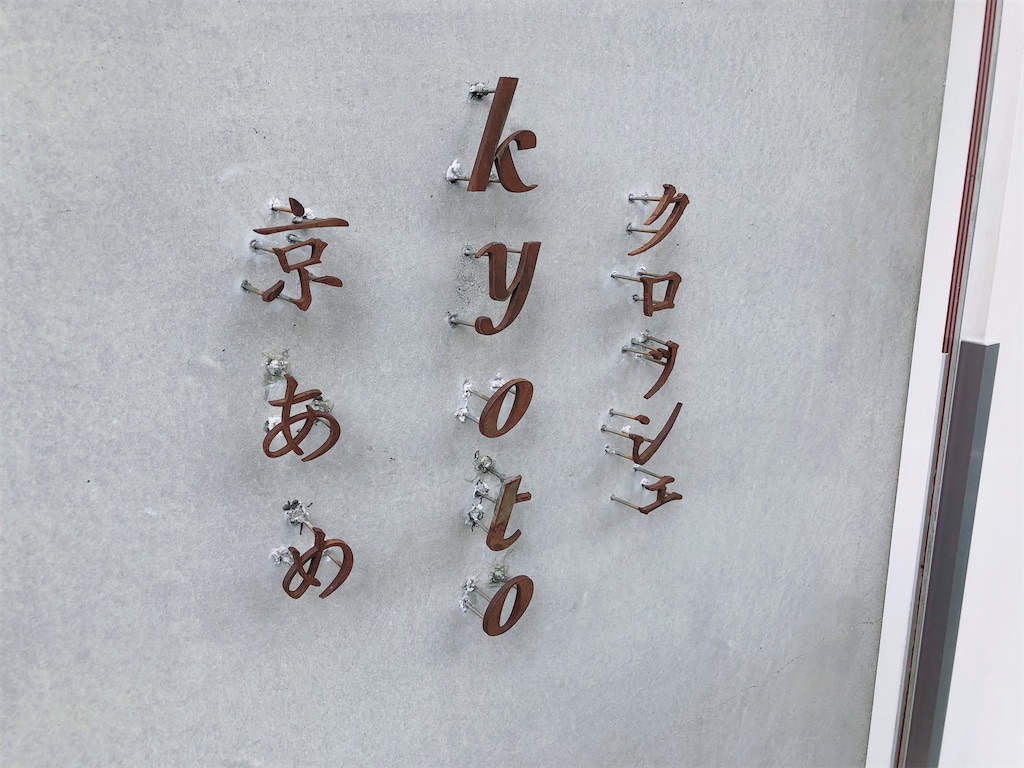 クロッシェ
kyoto
京あめ